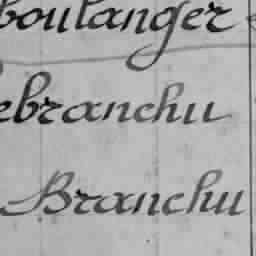 boulanger
ebranchu
Branchu